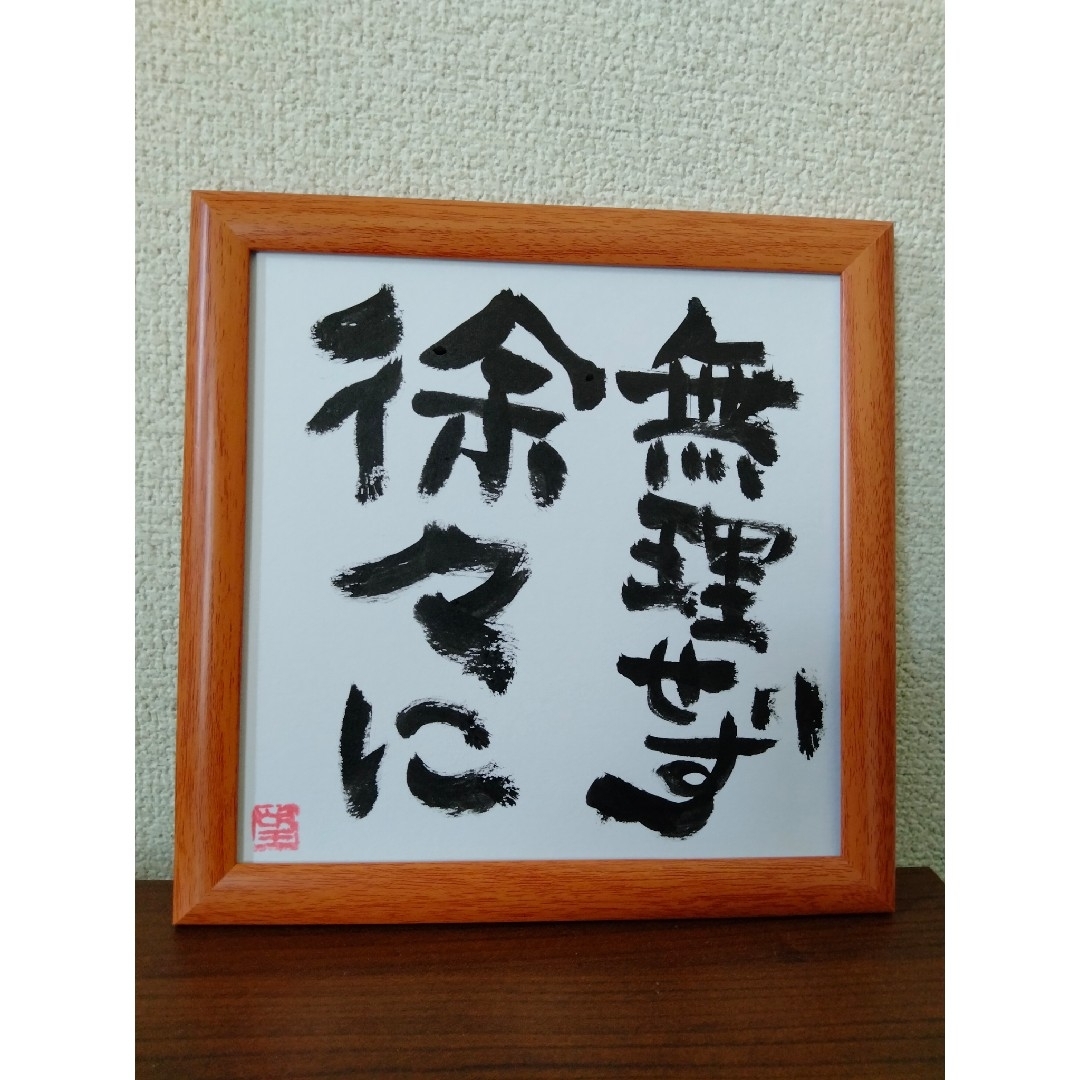 無理せず
徐々に